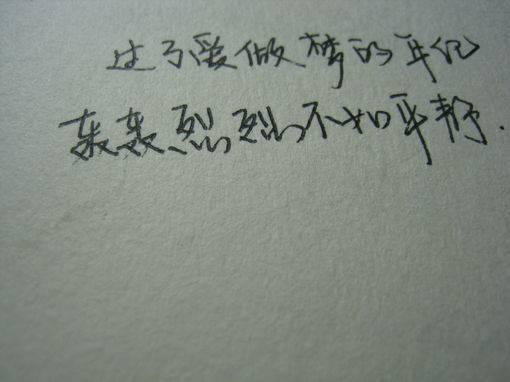 过了爱做梦的年纪
轰轰烈烈不如平静.